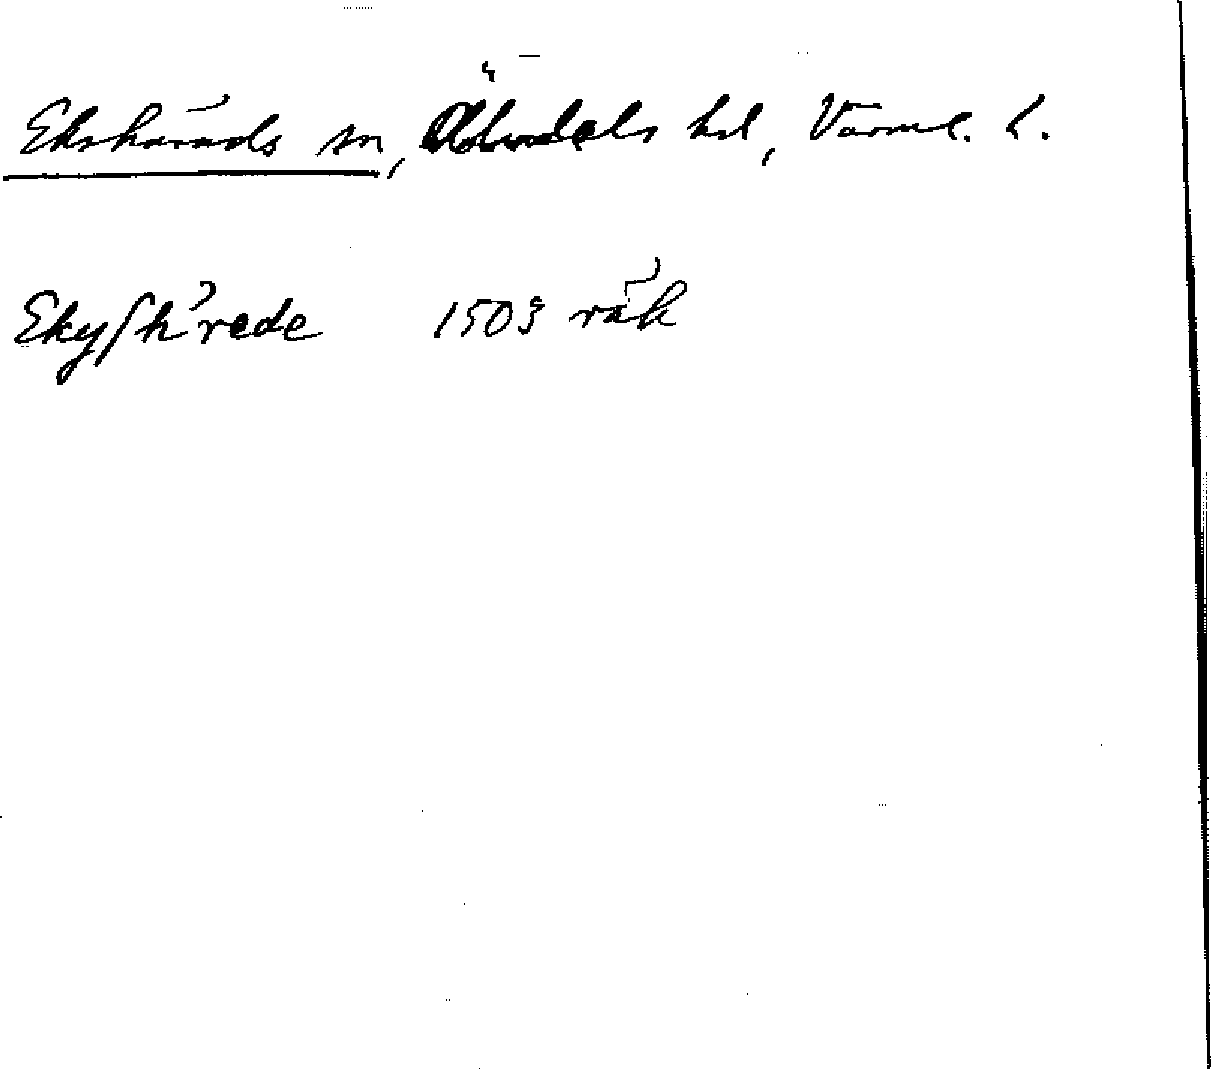 Ekshärads sn, Älvdals hd, Värml. l.
Ekyſhꝰrede 1503 räk